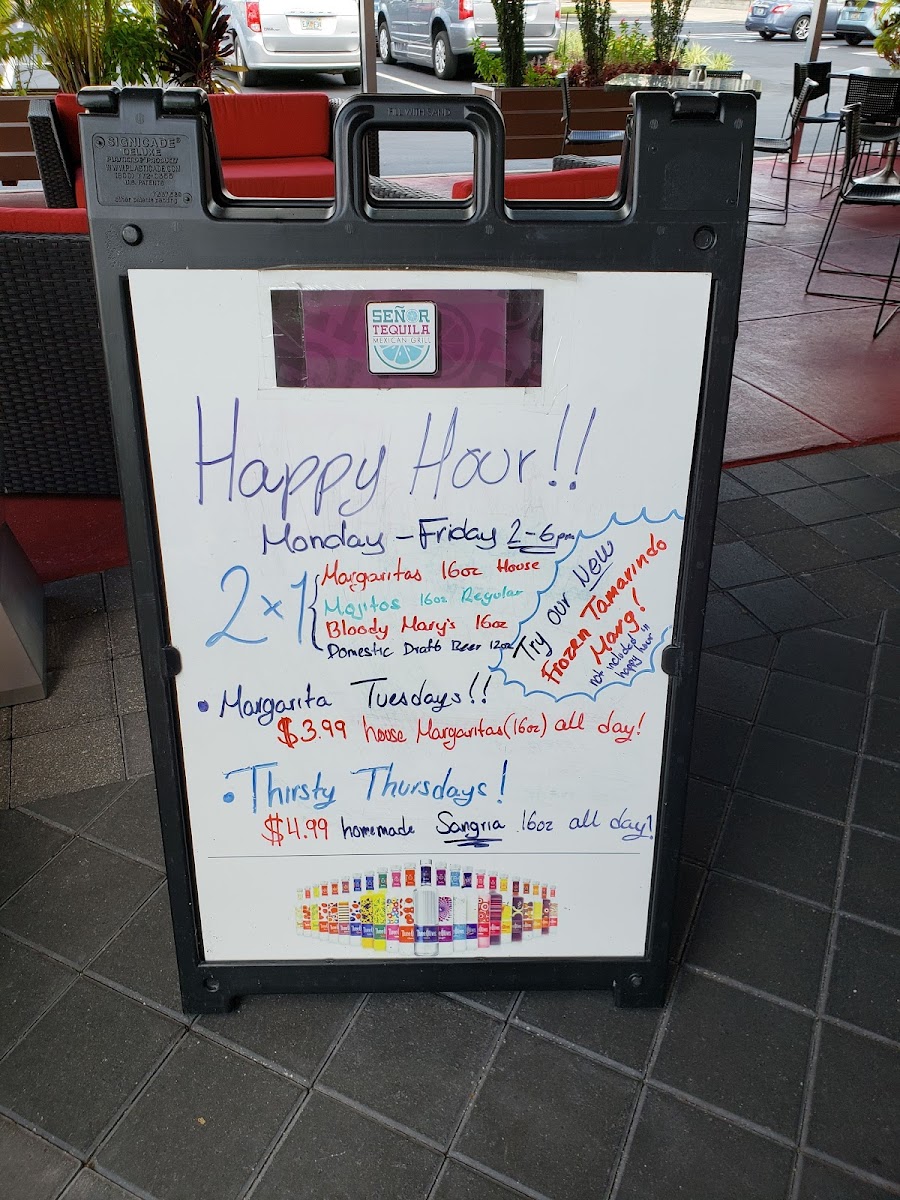 SIGNICADE®
DELUXE
SEÑOR
TEQUILA
MEXICAN GRILL
Happy Hour!!
Monday - Friday 2-6pm
2x1
Margaritas 16oz House
Mojitos 16oz Regular
Bloody Mary's 16oz
Domestic Draft Beer 12oz
Try our New
Frozen Tamarindo
Marg!
not included in
happy hour
• Margarita Tuesdays!!
$3.99 house Margaritas(16oz) all day!
• Thirsty Thursdays!
$4.99 homemade Sangria 16oz all day!